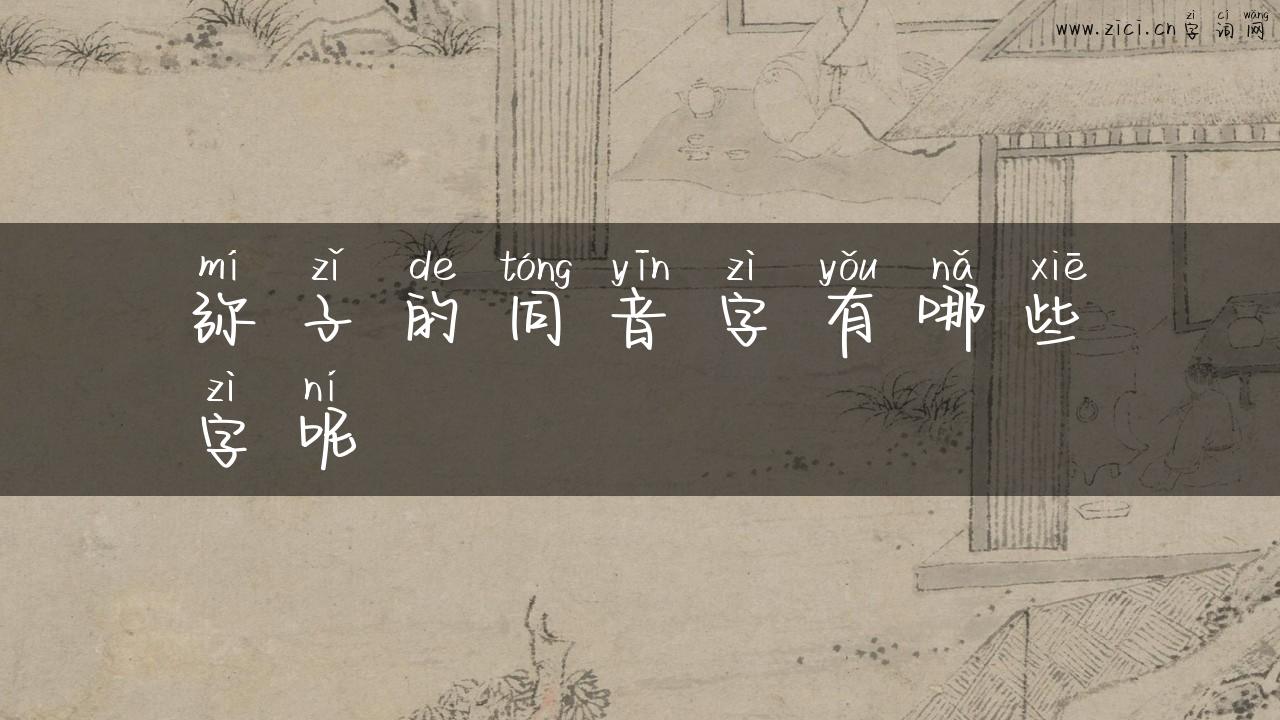 zì cí wǎng
www.zici.cn 字 词 网
mí zǐ de tóng yīn zì yǒu nǎ xiē
弥 子 的 同 音 字 有 哪 些
zì ní
字 呢